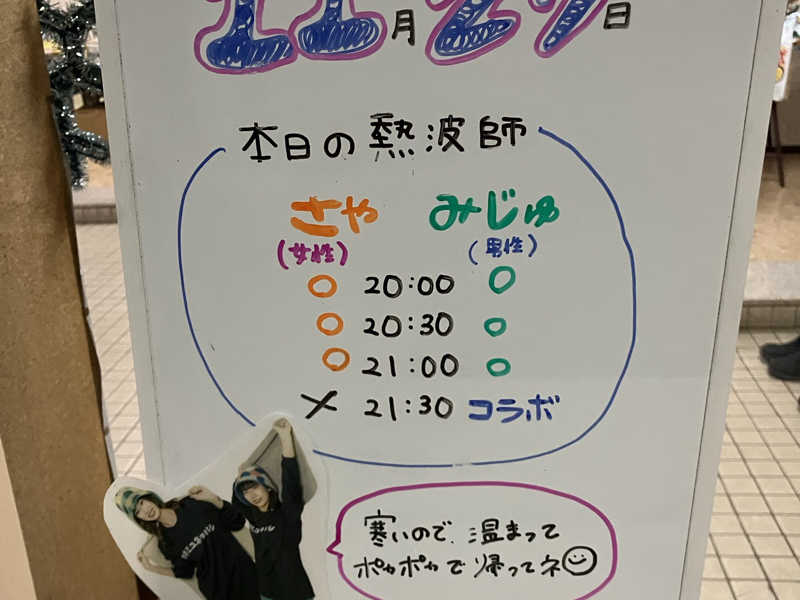 11月29日
本日の熱波師
さや みじゅ
(女性) (男性)
○ 20:00 ○
○ 20:30 ○
○ 21:00 ○
× 21:30 コラボ
寒いので、温まって
ポカポカで帰ってネ